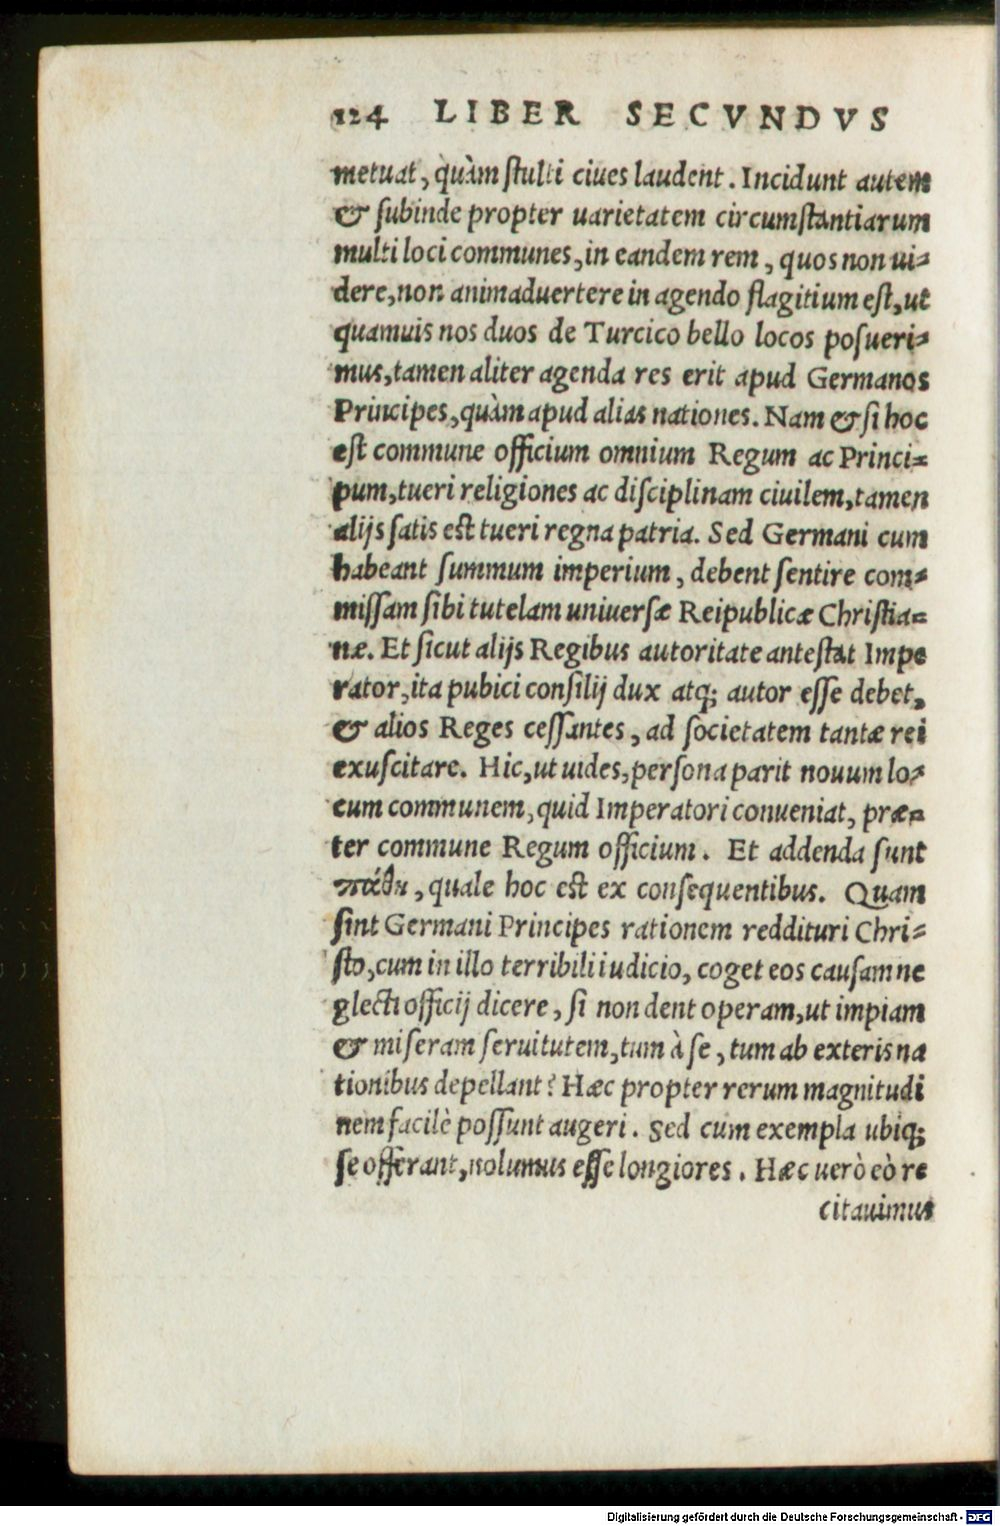 124 LIBER SECVNDVS
metuat, quàm stulti ciues laudent. Incidunt autem
& subinde propter uarietatem circumstantiarum
multi loci communes, in eandem rem, quos non ui-
dere, non animaduertere in agendo flagitium est, ut
quamuis nos duos de Turcico bello locos posueri-
mus, tamen aliter agenda res erit apud Germanos
Principes, quàm apud alias nationes. Nam & si hoc
est commune officium omnium Regum ac Princi-
pum, tueri religiones ac disciplinam ciuilem, tamen
alijs satis est tueri regna patria. Sed Germani cum
habeant summum imperium, debent sentire com-
missam sibi tutelam uniuersæ Reipublicæ Christia-
næ. Et sicut alijs Regibus autoritate antestat Impe
rator, ita pubici consilij dux atq; autor esse debet,
& alios Reges cessantes, ad societatem tantæ rei
exuscitare. Hic, ut uides, persona parit nouum lo-
cum communem, quid Imperatori conueniat, præ-
ter commune Regum officium. Et addenda sunt
πάθη, quale hoc est ex consequentibus. Quam
sint Germani Principes rationem reddituri Chri-
sto, cum in illo terribili iudicio, coget eos causam ne
glecti officij dicere, si non dent operam, ut impiam
& miseram seruitutem, tum à se, tum ab exteris na
tionibus depellant? Hæc propter rerum magnitudi
nem facilè possunt augeri. Sed cum exempla ubiq;
se offerant, nolumus esse longiores. Hæc uerò eò re
citauimus
Digitalisierung gefördert durch die Deutsche Forschungsgemeinschaft - DFG